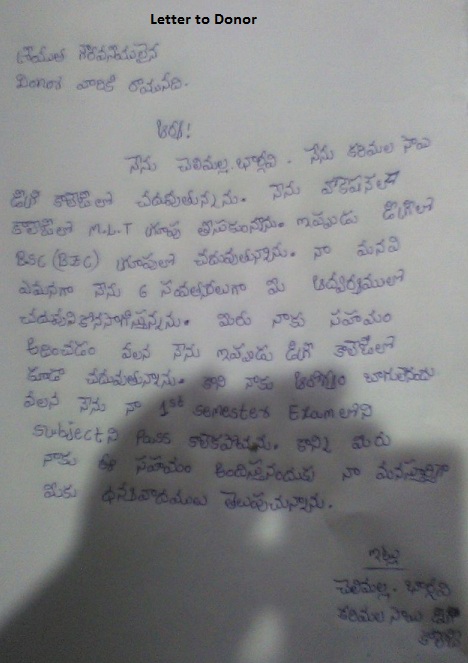 Letter to Donor
గౌరవనీయులైన
Donor వారికి రాయునది.
ఆర్యా!
నేను చెలిమల్ల. భార్గవి. నేను కరిమల సాయి
డిగ్రీ కాలేజీలో చదువుతున్నను. నేను వొకేషనల్
కాలేజీలో M.L.T గ్రూపు తీసుకున్నాను. ఇప్పుడు డిగ్రీలో
BSC (BZC) గ్రూపులో చదువుతున్నాను. నా మనవి
ఏమనగా నేను 6 సంవత్సరాలుగా మీ ఆధ్వర్యములో
చదువుని కొనసాగిస్తున్నను. మీరు నాకు సహాయం
అందించడం వలన నేను ఇప్పుడు డిగ్రీ కాలేజీలో
కూడా చదువుతున్నాను. కాని నాకు ఆరోగ్యం బాగులేనందు
వలన నేను నా 1st semester Exam లోని
subject ని Pass కాలేకపోయను. కాన్ని మీరు
నాకు ఈ సహాయం అందిస్తునందుకు నా మనస్పూర్తిగా
మీకు ధన్యవాదములు తెలుపుచున్నాను.
ఇట్లు
చెలిమల్ల. భార్గవి
కరిమల సాయి డిగ్రీ
కాలేజీ